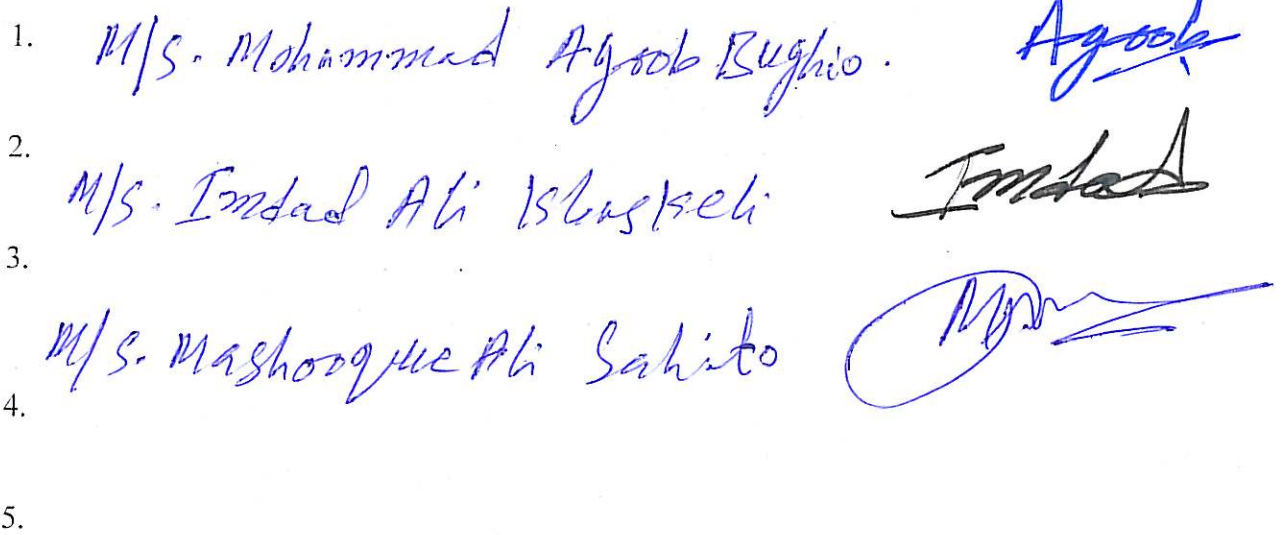 1. M/S. Mohammad Agoob Bughio. Agoob
2.
M/S. Imdad Ali Imdad
3.
M/S. Mashooque Ali Sahito
4.
5.